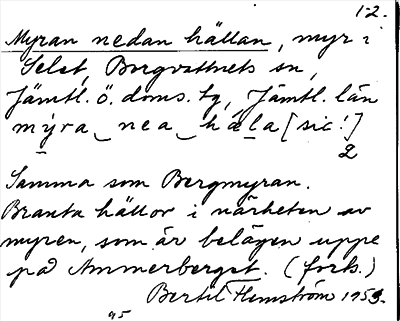 12.
Myran nedan hällan, myr i
Selet, Borgvattnets sn,
Jämtl. ö. doms. tg, Jämtl. län
mýra ‿ nea ‿ hála [sic!]
2
Samma som Bergmyran.
Branta hällor i närheten av
myren, som är belägen uppe
på Ammerberget. (forts.)
Bertil Hemström 1953.
95